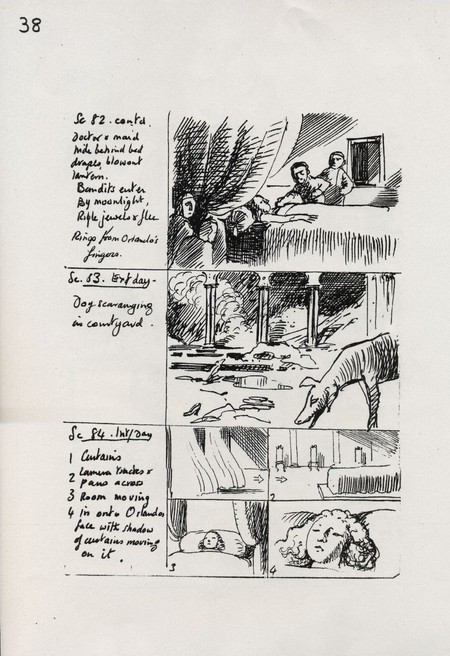 38
Sc 82. contd.
Doctor & maid
hide behind bed
drapes, blowout
lantern.
Bandits enter
By moonlight,
Rifle jewels & flee
Rings from Orlando's
fingers.
Sc. 83. Ext day-
Dog scavanging
in courtyard.
Sc 84. Int/Day
1 Curtains
2 Camera tracks &
pans across
3 Room moving
4 in onto Orlandos
face with shadow
of curtains moving
on it.
2
3
4